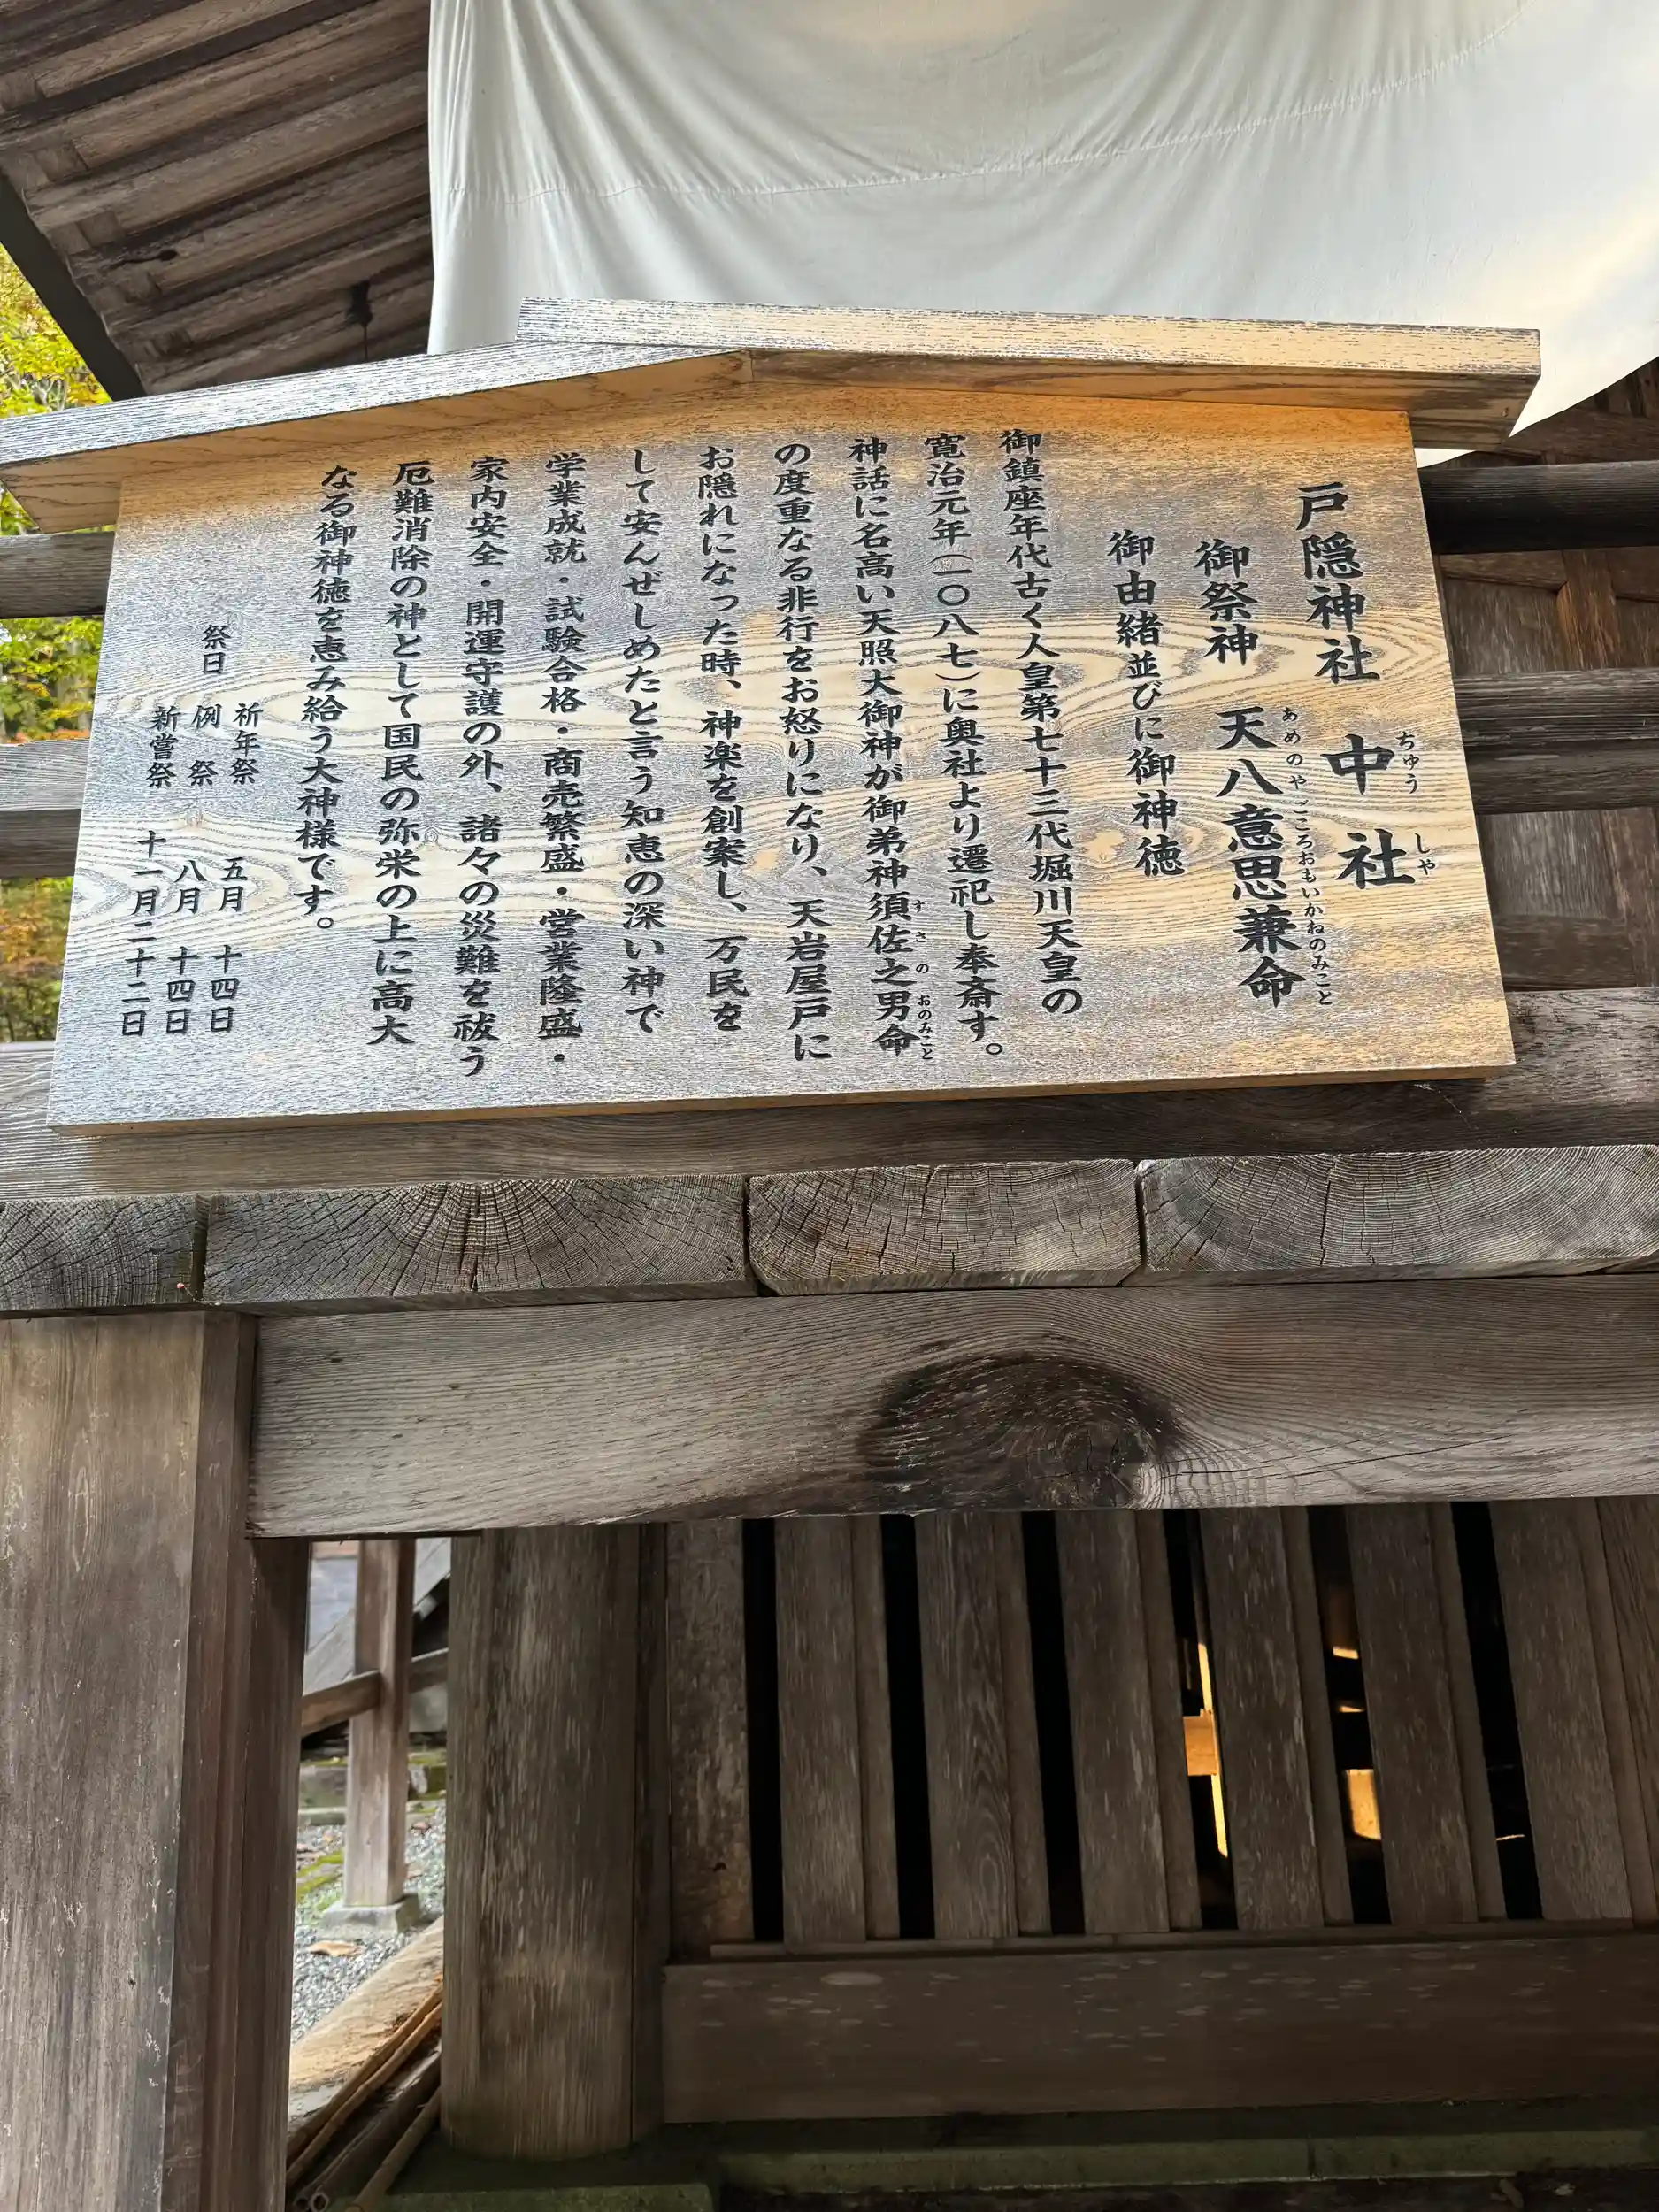 戸隠神社　中社
ちゅう　しや
御祭神　天八意思兼命
あめのやごころおもいかねのみこと
御由緒並びに御神徳
御鎮座年代古く人皇第七十三代堀川天皇の
寛治元年（一〇八七）に奥社より遷祀し奉斎す。
神話に名高い天照大御神が御弟神須佐之男命
すさのおのみこと
の度重なる非行をお怒りになり、天岩屋戸に
お隠れになった時、神楽を創案し、万民を
して安んぜしめたと言う知恵の深い神で
学業成就・試験合格・商売繁盛・営業隆盛・
家内安全・開運守護の外、諸々の災難を祓う
厄難消除の神として国民の弥栄の上に高大
なる御神徳を恵み給う大神様です。
祈年祭　五月　十四日
祭日　例　祭　八月　十四日
新嘗祭　十一月二十二日